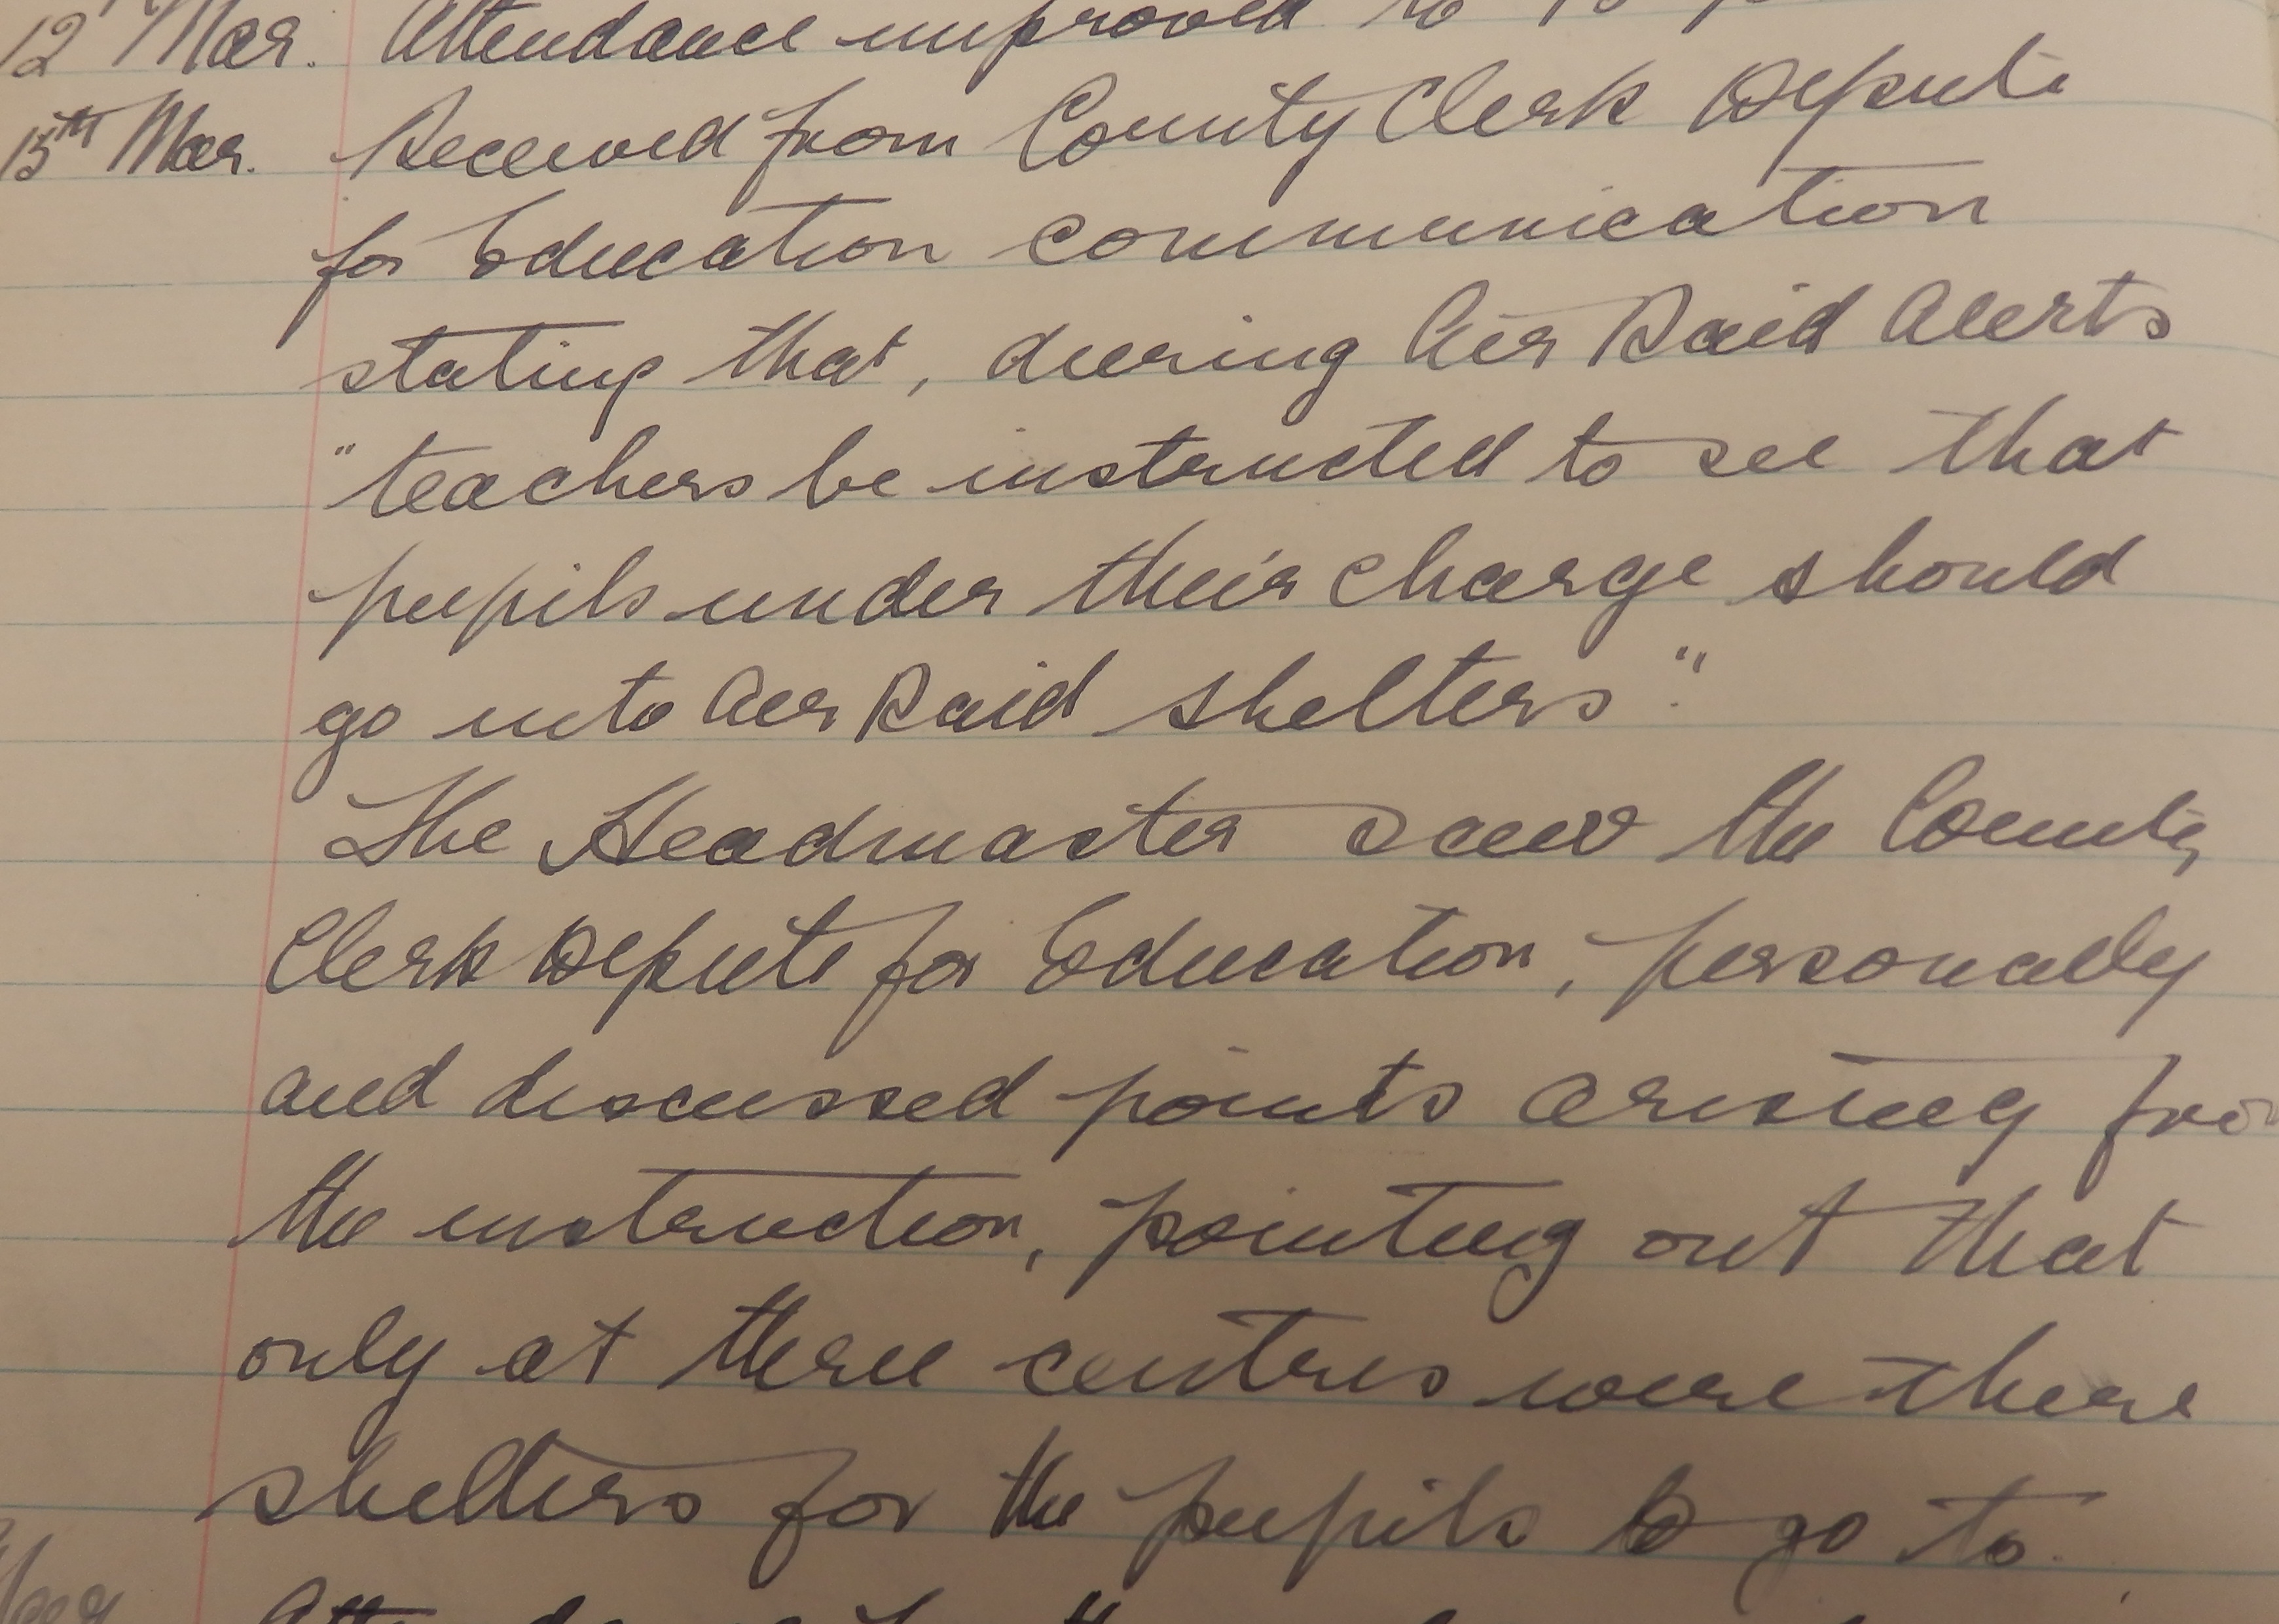 12 Mar. Attendance improved to
15th Mar. Received from County Clerk Depute
for Education communication
stating that, during Air Raid Alerts
"teachers be instructed to see that
pupils under their charge should
go into Air Raid shelters".
The Headmaster saw the County
Clerk Depute for Education, personally
and discussed points arising from
the instruction, pointing out that
only at three centres were there
shelters for the pupils to go to.